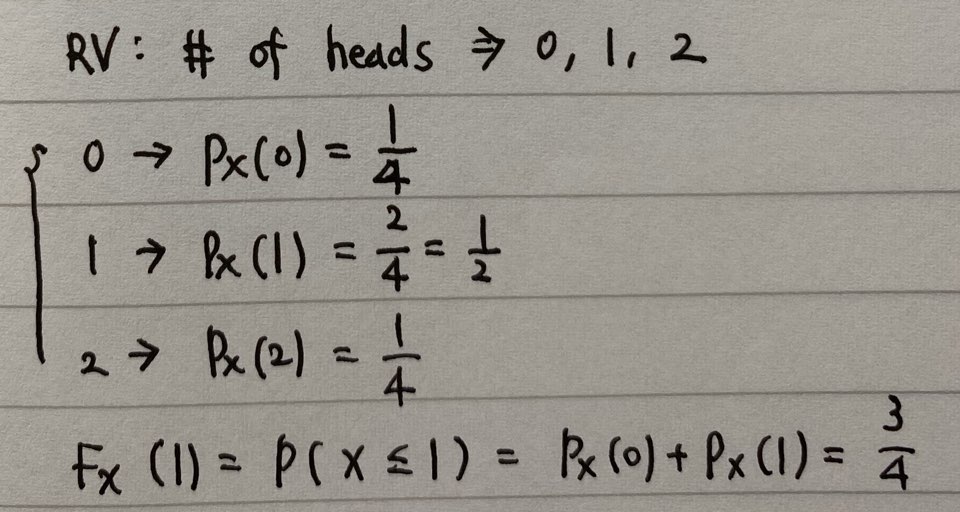 RV: # of heads ⇒ 0, 1, 2
0 → Px(0) = 1/4
1 → Px(1) = 2/4 = 1/2
2 → Px(2) = 1/4
Fx(1) = P(X ≤ 1) = Px(0) + Px(1) = 3/4